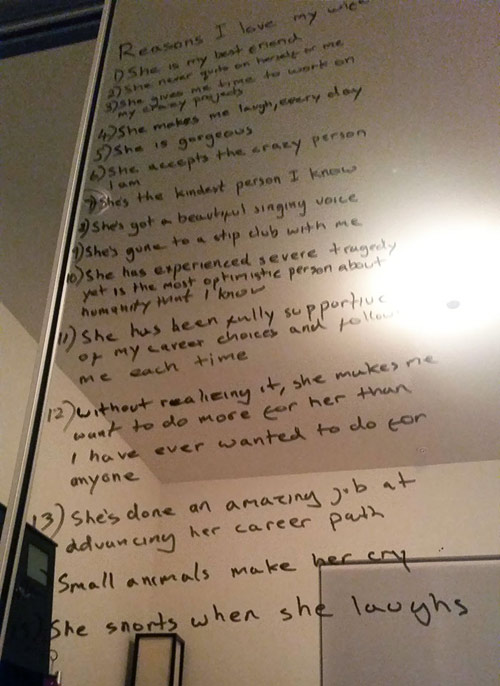 Reasons I love my wife
1) She is my best friend
2) She never quits on herself or me
3) She gives me time to work on
my crazy projects
4) She makes me laugh, every day
5) She is gorgeous
6) She accepts the crazy person
I am
7) She's the kindest person I know
8) She's got a beautiful singing voice
9) She's gone to a stip club with me
10) She has experienced severe tragedy
yet is the most optimistic person about
humanity that I know
11) She has been fully supportive
of my career choices and follow
me each time
12) Without realizing it, she makes me
want to do more for her than
I have ever wanted to do for
anyone
13) She's done an amazing job at
advancing her career path
Small animals make her cry
She snorts when she laughs